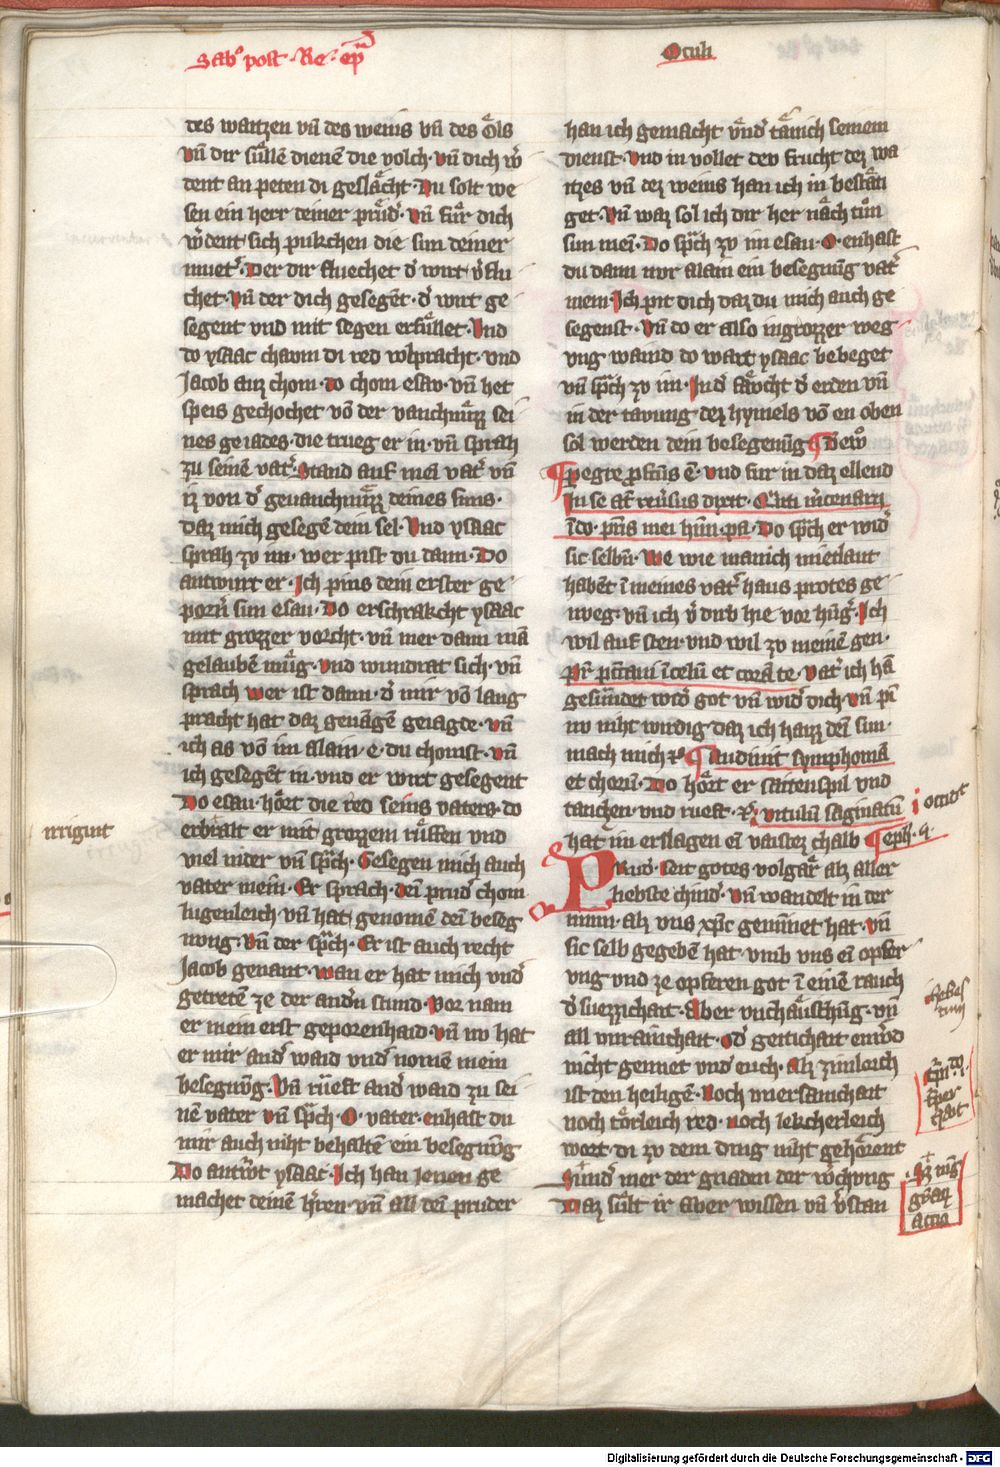 Sabᵒ post · Re · ep̄
Oculi
des waitzen vn̄ des weins vn̄ des Ols
vn̄ dir sullē dienē die volch · vn̄ dich w̓
dent an peten di geslächt · Du solt we
sen ein herr deiner prüd̓ · vn̄ für dich
w̓dent sich pukchen die sun deiner
muet̓ · Der dir fluechet d̓ wirt v̓flu
chet · Vn̄ der dich gesegēt · d̓ wirt ge
segent vnd mit segen erfüllet · Vnd
do ysaac chavm di red volpracht · vnd
Jacob auz chom · do chom esav · vn̄ het
speis gechochet vō der
nes geiades · die trueg er in · vn̄ sprah
zu seinē vat̓ · Stand auf mei vat̓ vn̄
iz von d̓ deines suns ·
daz mich gesegē dein sel · Vnd ysaac
sprah zv im · wer pist du dann · Do
antwurt er · Ich pins dein erster ge
porn̓ sun esau · Do erschrakcht ysaac
mit grozzer vorcht · vn̄ mer dann mā
gelaubē müg · vnd wundrat sich · vn̄
sprach wer ist dann · d̓ mir vō lang
pracht hat daz geuāgē geiagde · vn̄
ich as vō im allain · e · du chomst · vn̄
ich gesegēt in · vnd er wirt gesegent
Do esau · hört die red seins vaters · do
irrigiut
erbralt er mit grozzem rüffen vnd
viel nider vn̄ sp̄ch · Gesegen mich auch
vater mein · Er sprach · dei prud̓ chom
lugenleich vn̄ hat genomē dei beseg
nvng · Vn̄ der sp̄ch · Er ist auch recht
Jacob genant · wan er hat mich vnd̓
getretē ze der and̓n stund · Vor nam
er mein erst geporenhaid · vn̄ nv hat
er mir and̓ waid vnd̓ nomē mein
besegnv̄g · Vn̄ rüeft and̓ waid zu sei
nē vater vn̄ sp̄ch · O · vater · enhast du
mir auch niht behaltē ein besegnv̄g
Do antw̓t ysaac · Ich han Jenen ge
machet deinē h̓ren · vn̄ all dei pruder
han ich gemacht vnd̓ tänich seinem
dienst · Vnd in vollet dev frucht dez wa
itzes vn̄ dez weins han ich in bestäti
get · Vn̄ waz sol ich dir her näch tün
sun mei · Do sp̄ch zv im esau · O · enhast
du dann nvr alain ein besegnūg vat̓
mein · Ich pit dich daz du mich auch ge
segenst · Vn̄ do er also ingrozzer weg
vng waind do wart ysaac beweget
vn̄ sp̄ch zv im · In d̓ fäucht d̓ erden vn̄
in der tavung dez hymels vō en oben
sol werden dein besegenūg ¶
¶ Pegre p̄fc̄us ē · vnd fur in daz ellend
In se at̄ reu̓sus dixit · Qūti m̓cenarij
ī do · pr̄is mei hn̄t · pa · Do sp̄ch er wid̓
sic selbn̓ · We wie manich mietlaut
habēt ī meines vat̓ haus protes ge
nveg · vn̄ ich v̓dirb hie vor hūg̓ · Ich
wil auf sten · vnd wil zv meinē gen ·
Pr̄ pc̄cavi ī celū et corā te · Vat̓ ich hā
gesündet wid̓ got vn̄ wid̓ dich · vn̄ pī
nv niht wirdig daz ich haizz dei sun ·
mach mich ꝛc̄ ¶ Audiuit symphoniā
et chorū · Do hört er saitenspil vnd
tanchen · vnd rueft · ꝛc̄ · vitulū saginatū i occidit
hat im erslagen ei vaiztez chalb ¶ eph · 4 ·
Prud̓ · Seit gotes volgär alz aller
liebste chind̓ · vn̄ wandelt in der
minn · alz vns xp̄c geminnet hat · vn̄
sic selb gegebē hat · vmb vns ei opfer
vng vnd ze opferen got ī einē rauch
d̓ suezzichait · Aber vnchäuschūg · vn̄
all vnrainchait · Od̓ geitichait enw̓d
nicht gennet vnd̓ euch · Alz zimleich
ist den heiligē · Noch
noch törleich red · noch lekcherleich
wort · di zv dem ding niht gehörent
Sund̓ mer der gnaden der w̓chvng
Daz sült ir aber wissen vn̄ v̓stan
actio